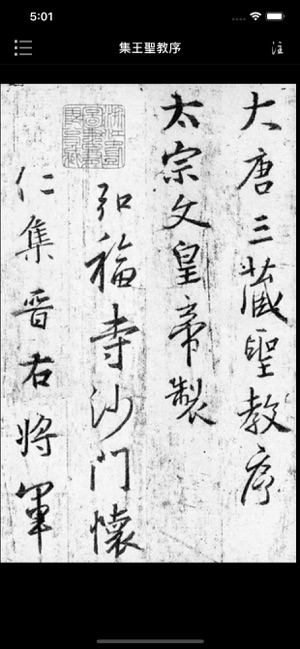 5:01
集王聖教序
注
大唐三藏聖教序
太宗文皇帝製
弘福寺沙門懷
仁集晉右將軍